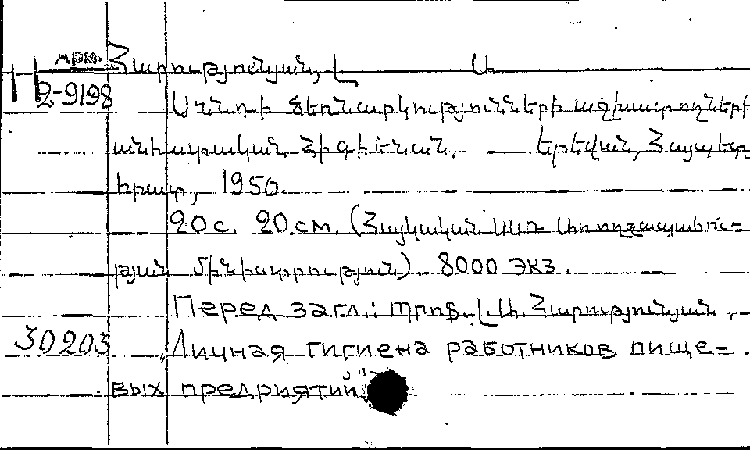 арм. Հարությունյան, Լ Ա
2-9198 Սննդի ձեռնարկությունների աշխատողների
անհատական հիգիենան. Երեվան, Հայպետ
հրատ, 1950.
20 с. 20 см. (Հայկական ՍՍՌ Առողջապահու=
թյան մինիստրություն) 8000 экз.
Перед загл.: պրոֆ. Լ. Ա. Հարությունյան.
30203 Личная гигиена работников пище=
вых предприятий